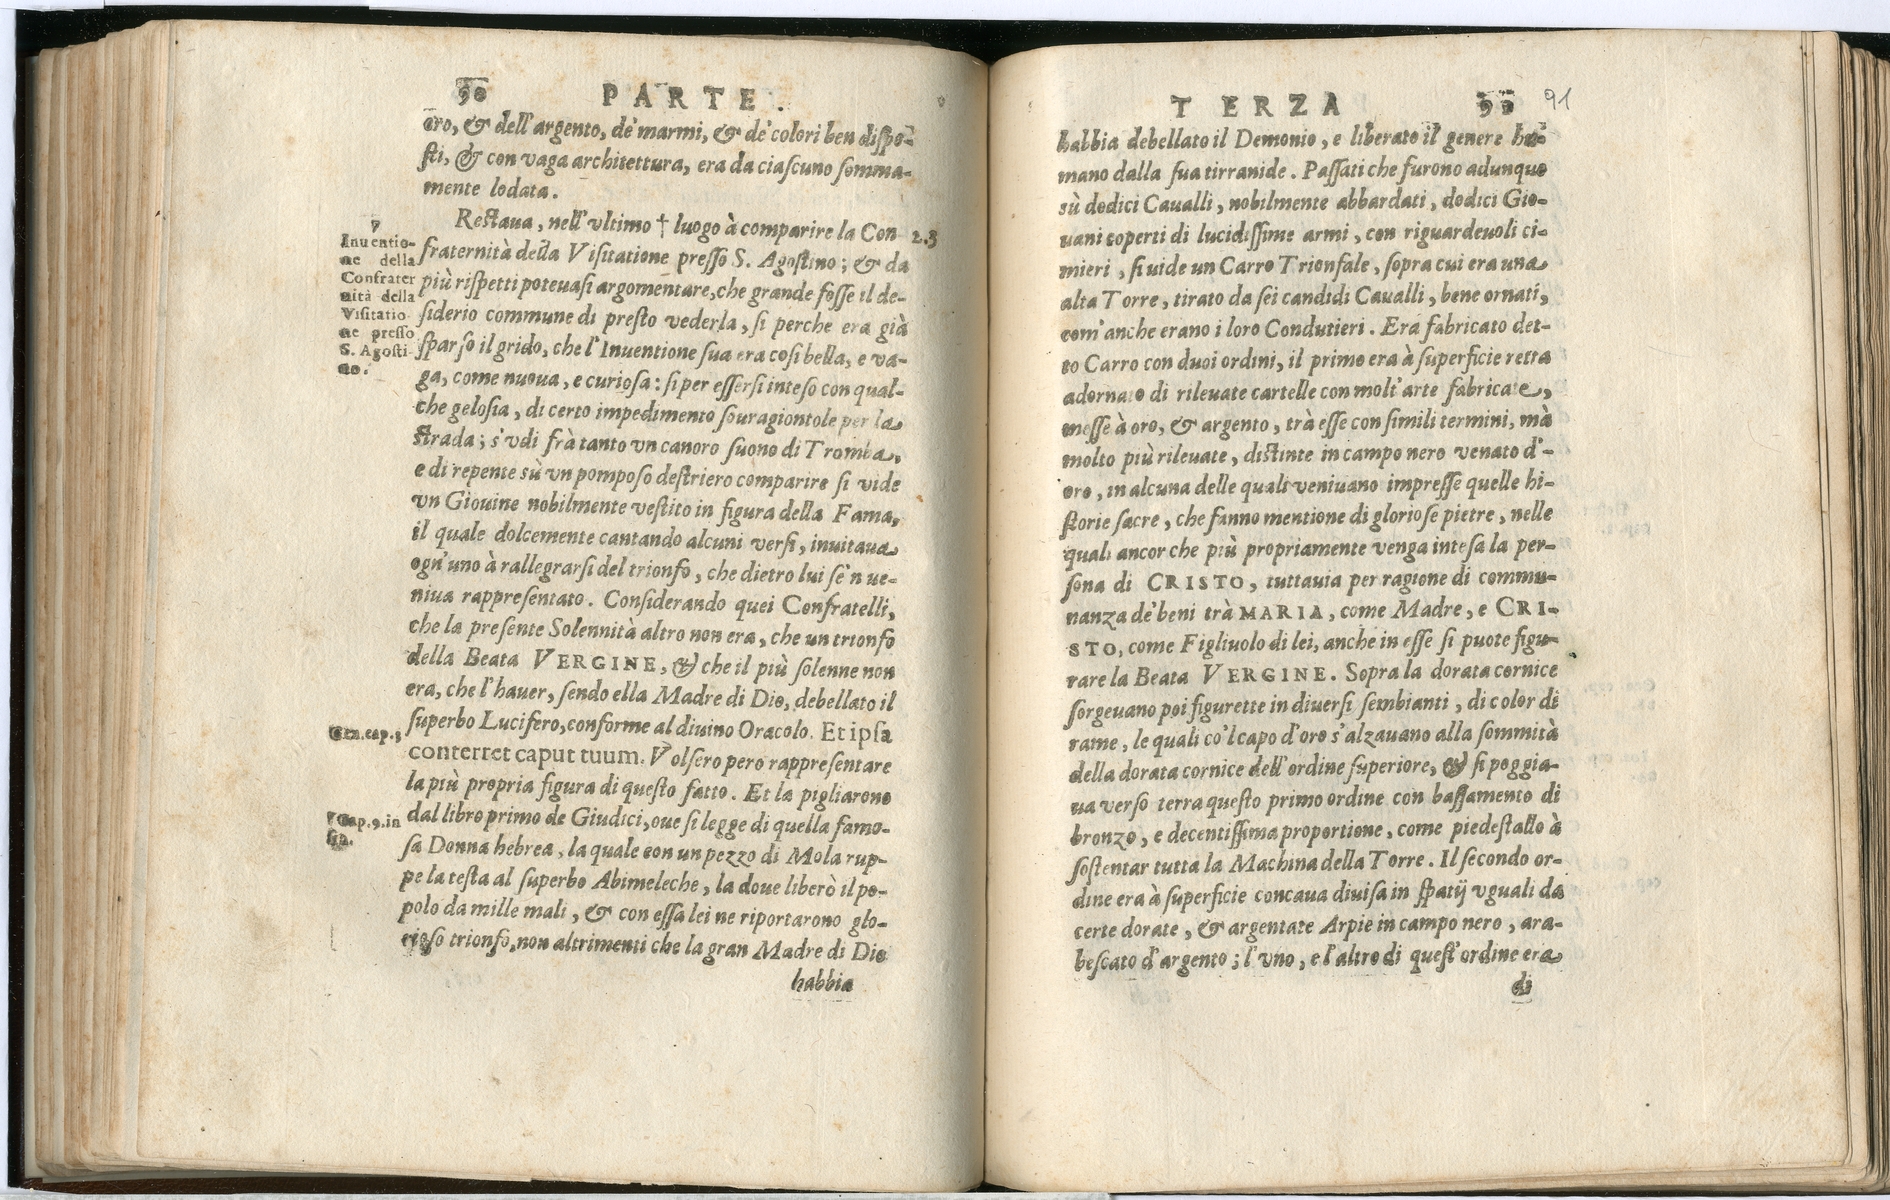 90 PARTE.
oro, & dell'argento, de' marmi, & de' colori ben dispo-
sti, & con vaga architettura, era da ciascuno somma-
mente lodata.
Restaua, nell'vltimo † luogo à comparire la Con- 2.3
fraternità della Visitatione presso S. Agostino; & da
più rispetti poteuasi argomentare, che grande fosse il de-
siderio commune di presto vederla, si perche era già
sparso il grido, che l'Inuentione sua era cosi bella, e va-
ga, come nuoua, e curiosa: si per essersi inteso con qual-
che gelosia, di certo impedimento souragiontole per la
strada; s'vdì frà tanto vn canoro suono di Tromba,
e di repente sù vn pomposo destriero comparire si vide
vn Giouine nobilmente vestito in figura della Fama,
il quale dolcemente cantando alcuni versi, inuitaua
ogn'uno à rallegrarsi del trionfo, che dietro lui se'n ue-
niua rappresentato. Considerando quei Confratelli,
che la presente Solennità altro non era, che un trionfo
della Beata VERGINE, & che il più solenne non
era, che l'hauer, sendo ella Madre di Dio, debellato il
superbo Lucifero, conforme al diuino Oracolo. Et ipsa
conterret caput tuum. Volsero pero rappresentare
la più propria figura di questo fatto. Et la pigliarono
dal libro primo de Giudici, oue si legge di quella famo-
sa Donna hebrea, la quale con un pezzo di Mola rup-
pe la testa al superbo Abimeleche, la doue liberò il po-
polo da mille mali, & con essa lei ne riportarono glo-
rioso trionfo, non altrimenti che la gran Madre di Dio
habbia
7
Inuentio-
ne della
Confrater
nità della
Visitatio
ne presso
S. Agosti-
no.
Gen. cap. 3
Cap. 9. in
fin.
TERZA 91
habbia debellato il Demonio, e liberato il genere hu-
mano dalla sua tirranide. Passati che furono adunque
sù dodici Caualli, nobilmente abbardati, dodici Gio-
uani coperti di lucidissime armi, con riguardeuoli ci-
mieri, si uide un Carro Trionfale, sopra cui era una
alta Torre, tirato da sei candidi Caualli, bene ornati,
com'anche erano i loro Condutieri. Era fabricato det-
to Carro con duoi ordini, il primo era à superficie retta
adornato di rileuate cartelle con molt'arte fabricate,
messe à oro, & argento, trà esse con simili termini, mà
molto più rileuate, distinte in campo nero venato d'-
oro, in alcuna delle quali veniuano impresse quelle hi-
storie sacre, che fanno mentione di gloriose pietre, nelle
quali ancor che più propriamente venga intesa la per-
sona di CRISTO, tuttauia per ragione di commu-
nanza de' beni trà MARIA, come Madre, e CRI-
STO, come Figliuolo di lei, anche in esse si puote figu-
rare la Beata VERGINE. Sopra la dorata cornice
sorgeuano poi figurette in diuersi sembianti, di color di
rame, le quali co'l capo d'oro s'alzauano alla sommità
della dorata cornice dell'ordine superiore, & si poggia-
ua verso terra questo primo ordine con bassamento di
bronzo, e decentissima proportione, come piedestallo à
sostentar tutta la Machina della Torre. Il secondo or-
dine era à superficie concaua diuisa in spatij vguali da
certe dorate, & argentate Arpie in campo nero, ara-
bescato d'argento; l'vno, e l'altro di quest'ordine era
di